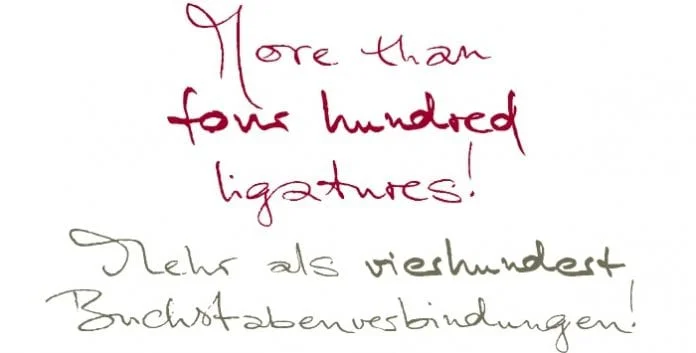 More than
four hundred
ligatures!
Mehr als vierhundert
Buchstabenverbindungen!